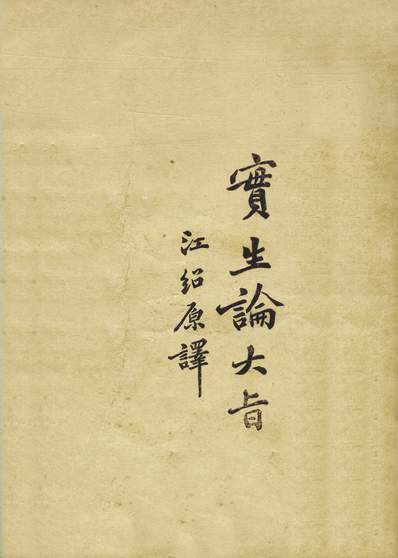 實生論大旨
江紹原譯